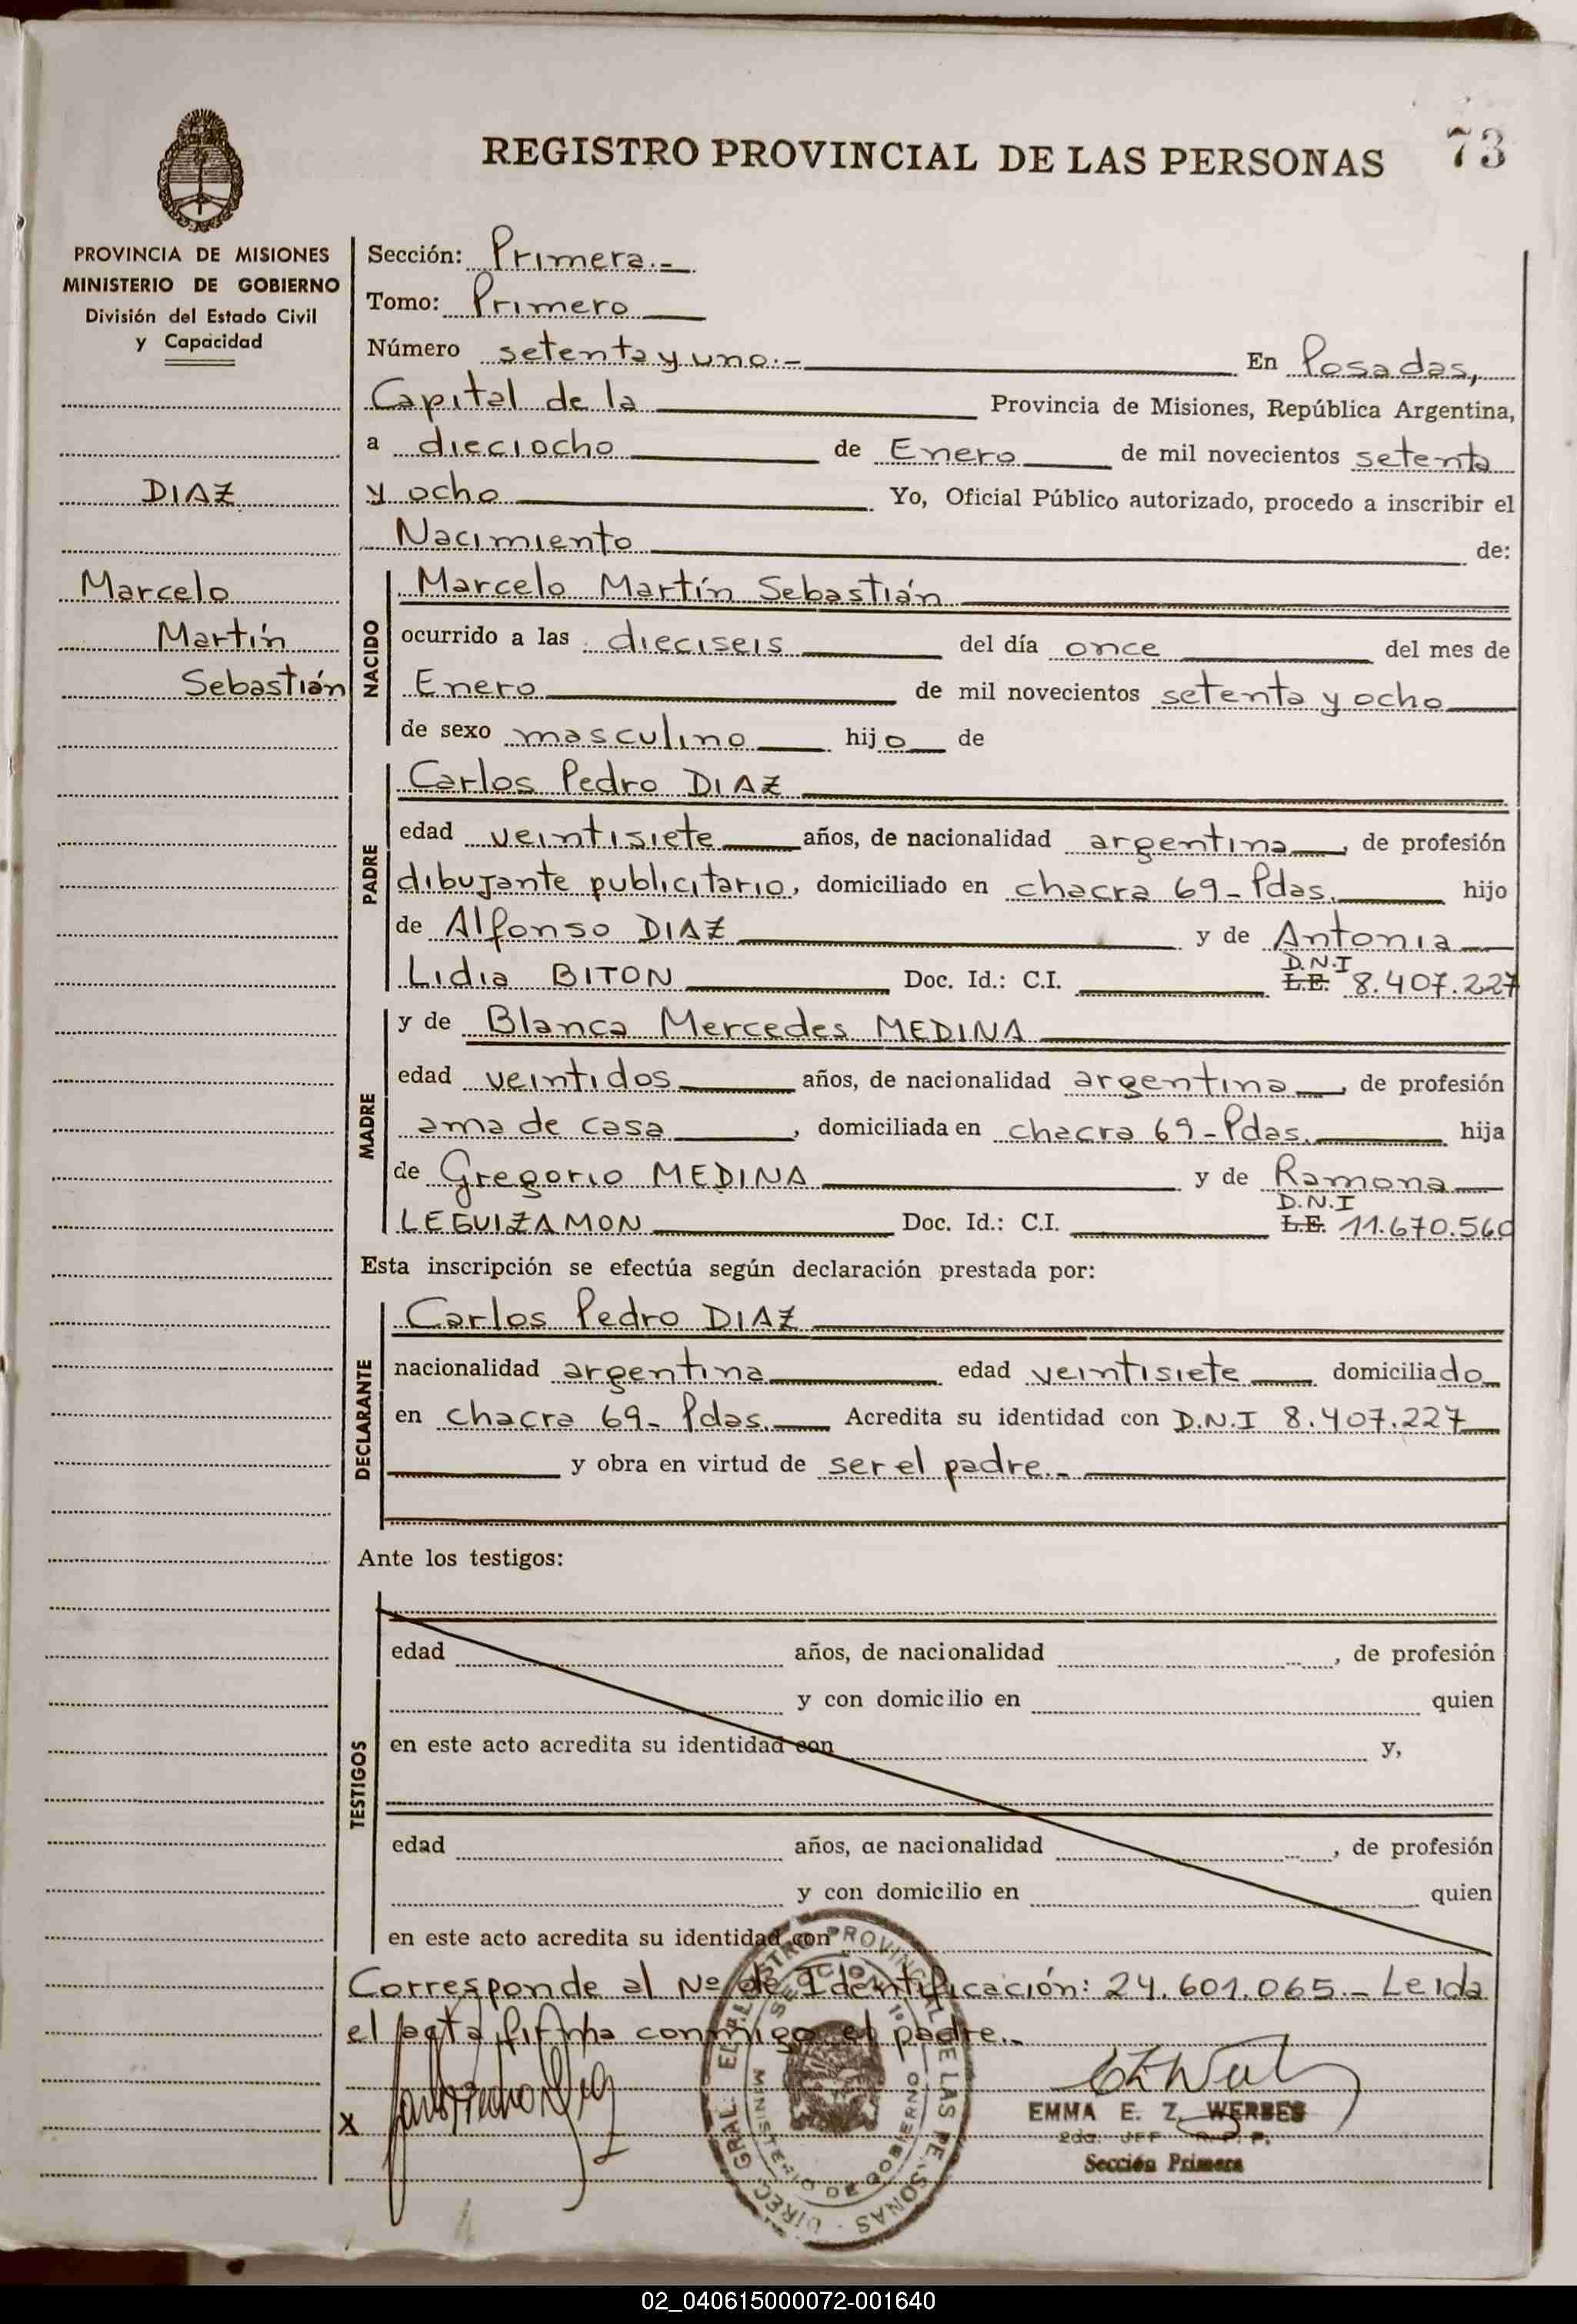 REGISTRO PROVINCIAL DE LAS PERSONAS 73
PROVINCIA DE MISIONES
MINISTERIO DE GOBIERNO
División del Estado Civil
y Capacidad
DIAZ
Marcelo
Martín
Sebastián
Sección: Primera.-
Tomo: Primero
Número setenta y uno.- En Posadas,
Capital de la Provincia de Misiones, República Argentina,
a dieciocho de Enero de mil novecientos setenta
y ocho Yo, Oficial Público autorizado, procedo a inscribir el
Nacimiento de:
NACIDO
Marcelo Martín Sebastián
ocurrido a las dieciseis del día once del mes de
Enero de mil novecientos setenta y ocho
de sexo masculino hijo de
PADRE
Carlos Pedro DIAZ
edad veintisiete años, de nacionalidad argentina, de profesión
dibujante publicitario, domiciliado en chacra 69- Pdas. hijo
de Alfonso DIAZ y de Antonia
Lidia BITON Doc. Id.: C.I. L.E. D.N.I 8.407.227
MADRE
y de Blanca Mercedes MEDINA
edad veintidos años, de nacionalidad argentina, de profesión
ama de casa, domiciliada en chacra 69- Pdas. hija
de Gregorio MEDINA y de Ramona
LEGUIZAMON Doc. Id.: C.I. L.E. D.N.I 11.670.560
Esta inscripción se efectúa según declaración prestada por:
DECLARANTE
Carlos Pedro DIAZ
nacionalidad argentina edad veintisiete domiciliado
en chacra 69- Pdas. Acredita su identidad con D.N.I 8.407.227
y obra en virtud de ser el padre.-
Ante los testigos:
TESTIGOS
edad años, de nacionalidad , de profesión
y con domicilio en quien
en este acto acredita su identidad con y,
edad años, de nacionalidad , de profesión
y con domicilio en quien
en este acto acredita su identidad con
Corresponde al Nº de Identificación: 24.601.065.- Leida
el acta, firma conmigo el padre.-
X
DIREC. GRAL. DEL REGISTRO PROVINCIAL DE LAS PERSONAS
SECCION 1ª
MINISTERIO DE GOBIERNO
EMMA E. Z. WERBES
Sección Primera
02_040615000072-001640